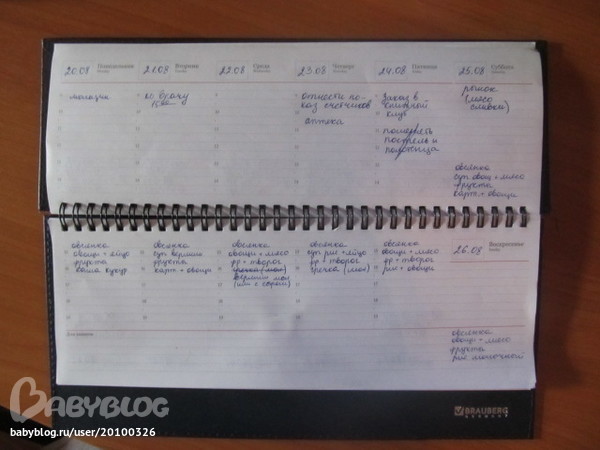 20.08 Понедельник
21.08 Вторник
22.08 Среда
23.08 Четверг
24.08 Пятница
25.08 Суббота
магазин
к врачу
отнести по-
каз счетчиков
аптека
заказ в
книжный
клуб
поменять
постель и
полотенца
рынок
(мясо
сладкое)
овсянка
суп овощ + мясо
фрукты
карт + овощи
овсянка
овощи + яйцо
фрукты
каша кукур
овсянка
суп вермиш
фрукты
карт + овощи
овсянка
овощи + мясо
фр + творог
гречка (мол)
вермиш мол
(или с сыром)
овсянка
суп рис + яйцо
фр + творог
гречка (мол)
овсянка
овощи + мясо
фр + творог
рис + овощи
26.08 Воскресенье
овсянка
овощи + мясо
фрукты
рис молочный
BABYBLOG
babyblog.ru/user/20100326
BRAUBERG
GERMANY